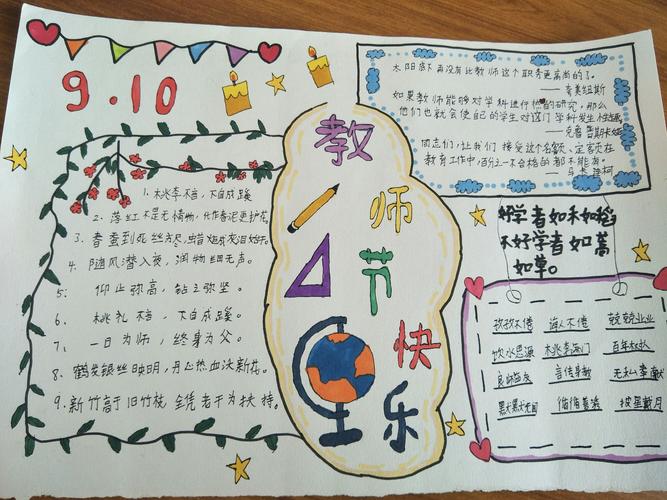 9.10
教师节快乐
1. 桃李不言，下自成蹊
2. 落红不是无情物，化作春泥更护花。
3. 春蚕到死丝方尽，蜡炬成灰泪始干。
4. 随风潜入夜，润物细无声。
5. 仰止弥高，钻之弥坚。
6. 桃礼不言，下自成蹊。
7. 一日为师，终身为父。
8. 鹤发银丝映日月，丹心热血沃新花。
9. 新竹高于旧竹枝，全凭老干为扶持。
太阳底下再没有比教师这个职务更高尚的了。
——夸美纽斯
如果教师能够对学科进行热的研究，那么
他们也就会使自己的学生对这门学科发生
——克鲁普斯卡娅
同志们，让我们接受这个名额，定客贝在
教育工作中，百分之一不合格的都不能有。
——马卡连柯
好学者如禾如稻
不好学者如蒿
如草。
孜孜不倦 诲人不倦 兢兢业业
饮水思源 桃李满门 百年树人
良师益友 言传身教 无私奉献
默默无闻 循循善诱 披星戴月